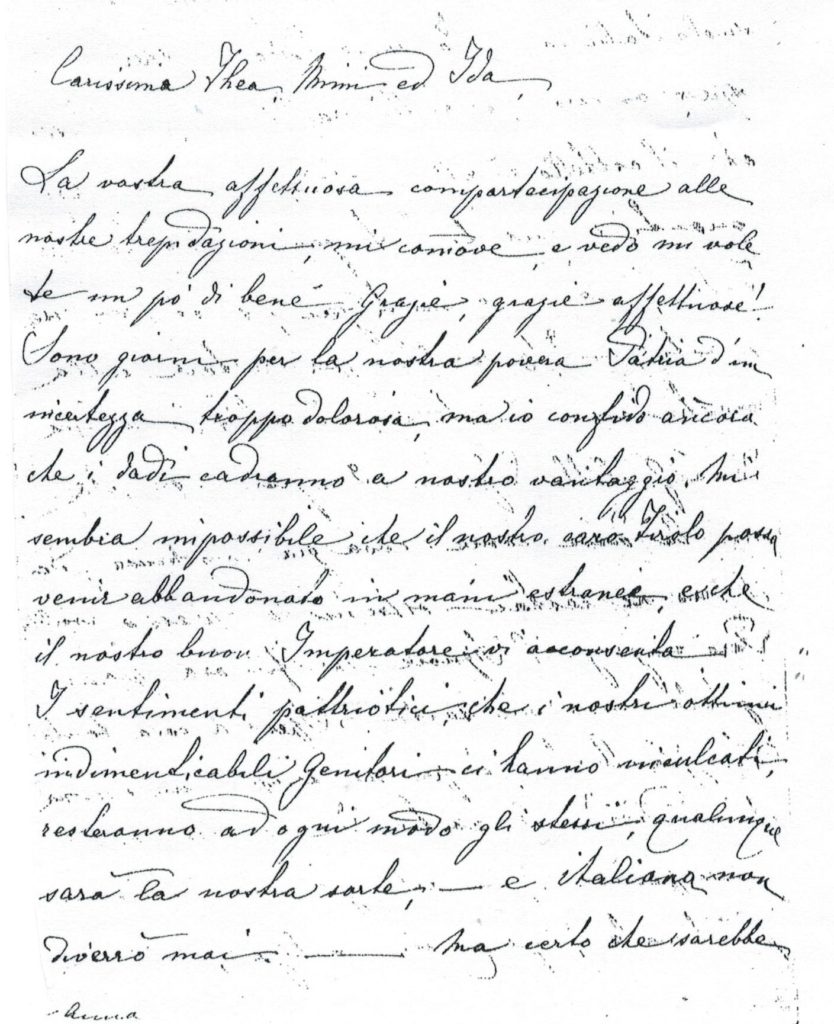 Carissima Thea, Mimi, ed Ida,
La vostra affettuosa compartecipazione alle
nostre trepidazioni, mi comōve, e vedo mi vole
te un pò di bene. Grazie, grazie affettuose!
Sono giorni per la nostra povera Patria d'un
incertezza troppo dolorosa, ma io confido ancora
che i dadi cadranno a nostro vantaggio. Mi
sembra impossibile che il nostro caro Tirolo possa
venir abbandonato in mani estranee, e che
il nostro buon Imperatore vi acconsenta
I sentimenti pattriotici, che i nostri ottimi
indimenticabili Genitori ci hanno inculcati,
resteranno ad ogni modo gli stessi, qualunque
sarà la nostra sorte, — e italiana non
diverrò mai. — Ma certo che sarebbe
Anna